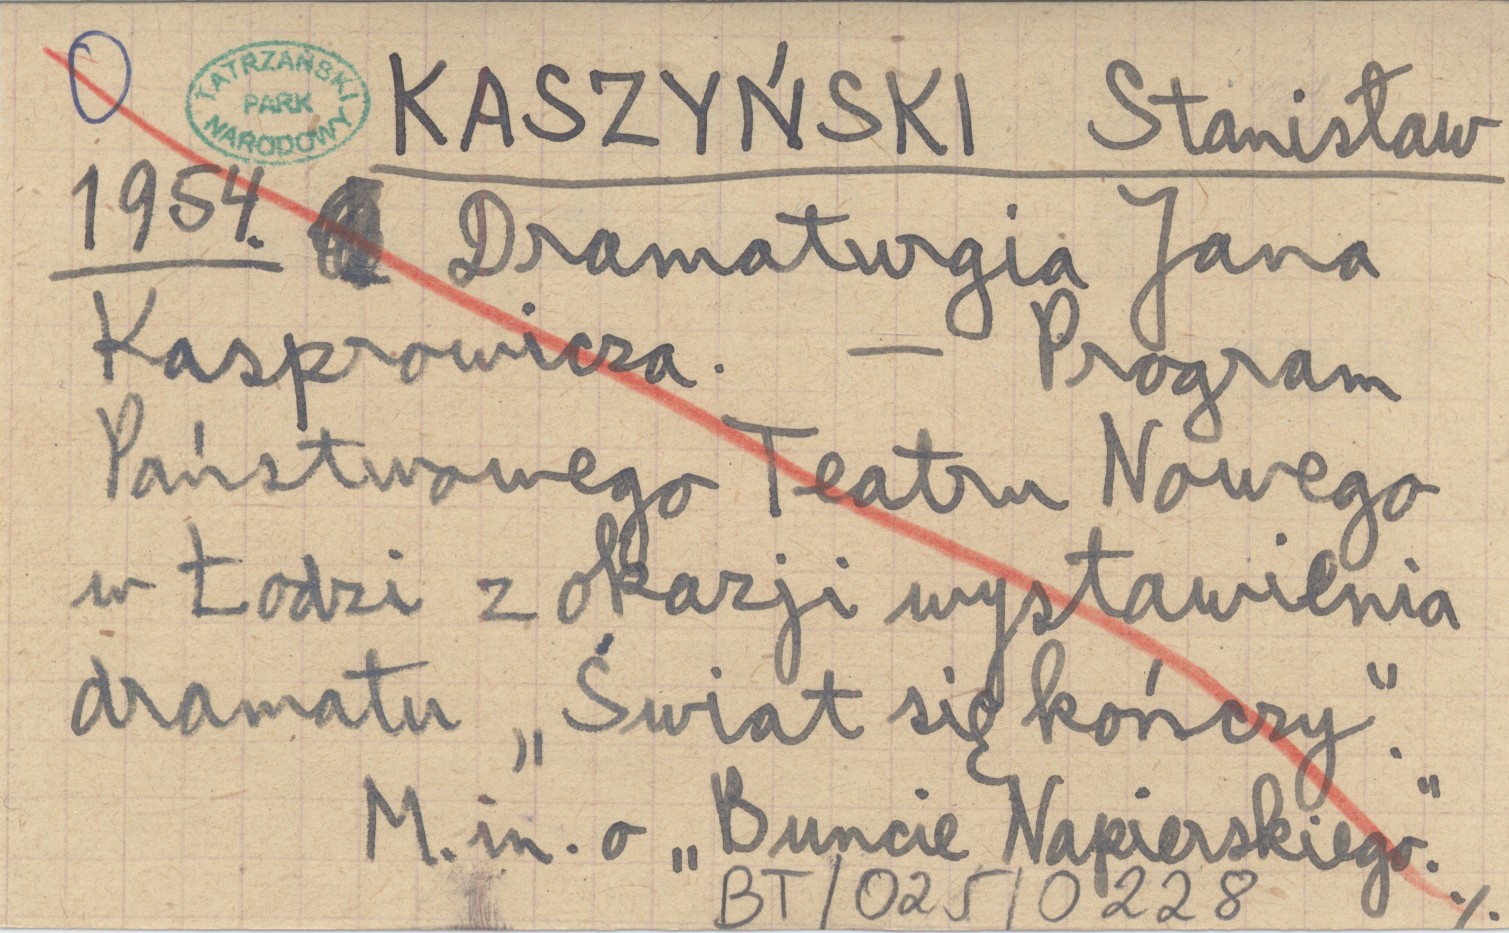 TATRZAŃSKI PARK NARODOWY
KASZYŃSKI Stanisław
1954. Dramaturgia Jana
Kasprowicza. — Program
Państwowego Teatru Nowego
w Łodzi z okazji wystawienia
dramatu „Świat się kończy".
M. in. o „Buncie Napierskiego."
BT/025/0228 ./.